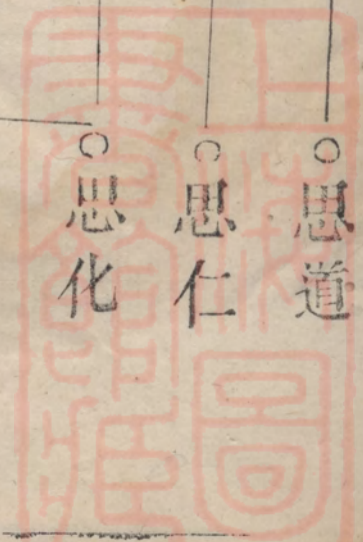 ○思道
○思仁
○思化